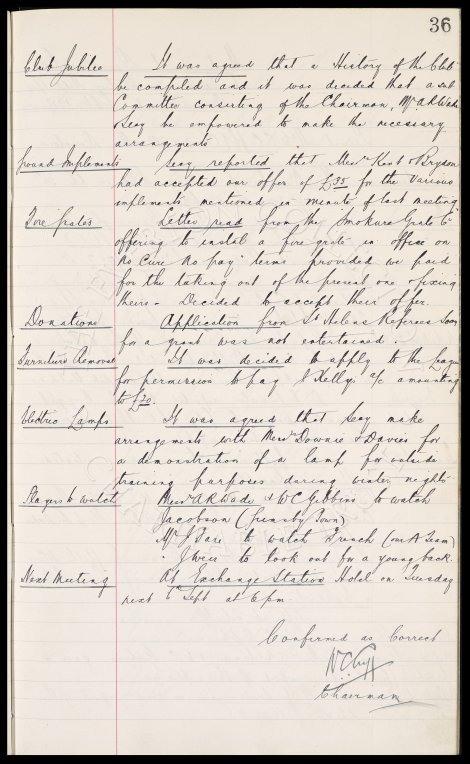 36
Club Jubilee It was agreed that a History of the Club
be compiled and it was decided that a sub
Committee consisting of the Chairman, Mr A R Wade
Secy be empowered to make the necessary
arrangements
Ground Implements Secy reported that Messrs Kent & Brydon
had accepted our offer of £35 for the various
implements mentioned in minute of last meeting
Fire Grates Letter read from the Smokure Grate Co
offering to instal a fire grate in office on
No Cure No pay terms provided we paid
for the taking out of the present one & fixing
theirs - Decided to accept their offer.
Donations Application from St Helens Referees Socy
for a grant was not entertained.
Furniture Removal It was decided to apply to the League
for permission to pay J Kelly's a/c amounting
to £20.
Electric Lamps It was agreed that Secy make
arrangements with Messrs Downie & Davies for
a demonstration of a lamp for outside
training purposes during winter nights
Players to watch Messrs A R Wade & W C Gibbins to watch
Jacobson (Grimsby Town)
Mr J Fare to watch French (our A Team)
" J Weir to look out for a young back.
Next Meeting At Exchange Station Hotel on Tuesday
next 6th Sept at 6 pm.
Confirmed as Correct
W C Cuff
Chairman